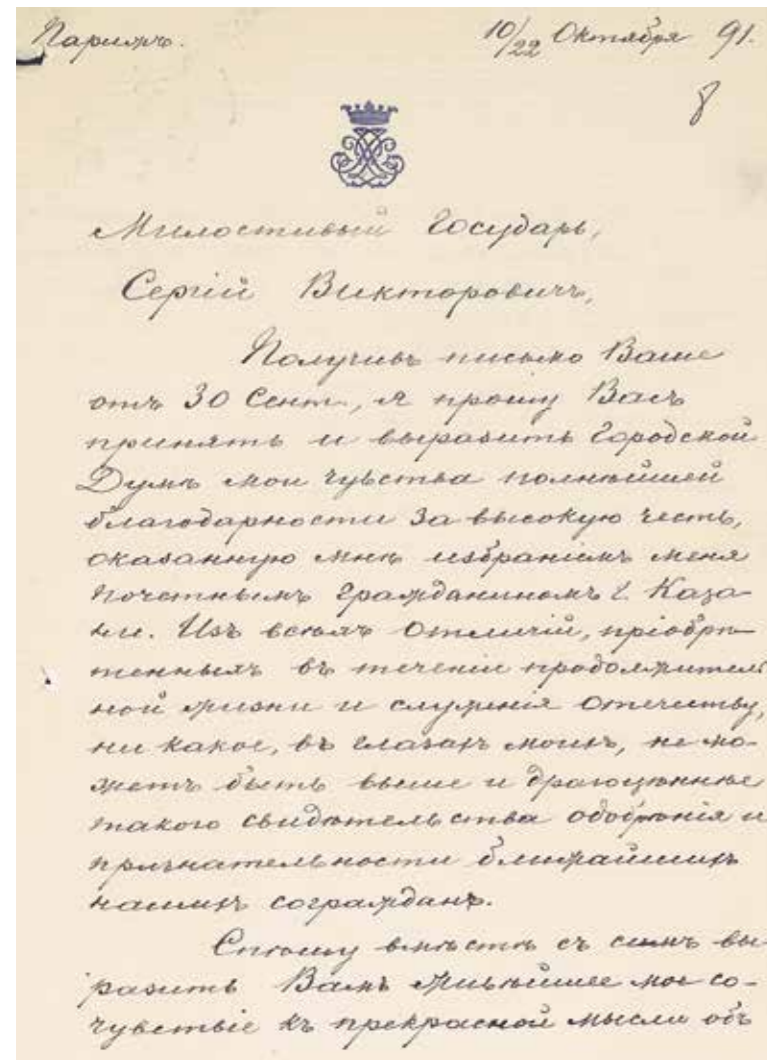 Парижъ.
10/22 Октября 91.
8
Милостивый Государь,
Сергій Викторовичъ,
Получивъ письмо Ваше
отъ 30 Сент., я прошу Васъ
принять и выразить Городской
Думѣ мои чувства полнѣйшей
благодарности за высокую честь,
оказанную мнѣ избраніемъ меня
почетнымъ гражданиномъ г. Каза-
ни. Изъ всѣхъ отличій, пріобрѣ-
тенныхъ въ теченіи продолжитель
ной жизни и служенія отечеству,
ни какое, въ глазахъ моихъ, не мо-
жетъ быть выше и драгоцѣннѣе
такого свидѣтельства одобренія и
признательности ближайшихъ
нашихъ согражданъ.
Спѣшу вмѣстѣ съ симъ вы-
разить Вамъ живѣйшее мое со-
чувствіе къ прекрасной мысли объ